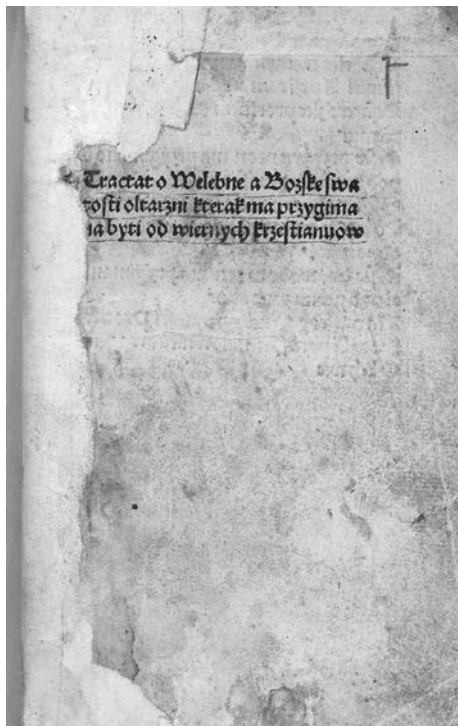 Tractat o Welebne a Bozske swa
tosti oltarzni kterak ma przygima
na byti od wiernych krzestianuow